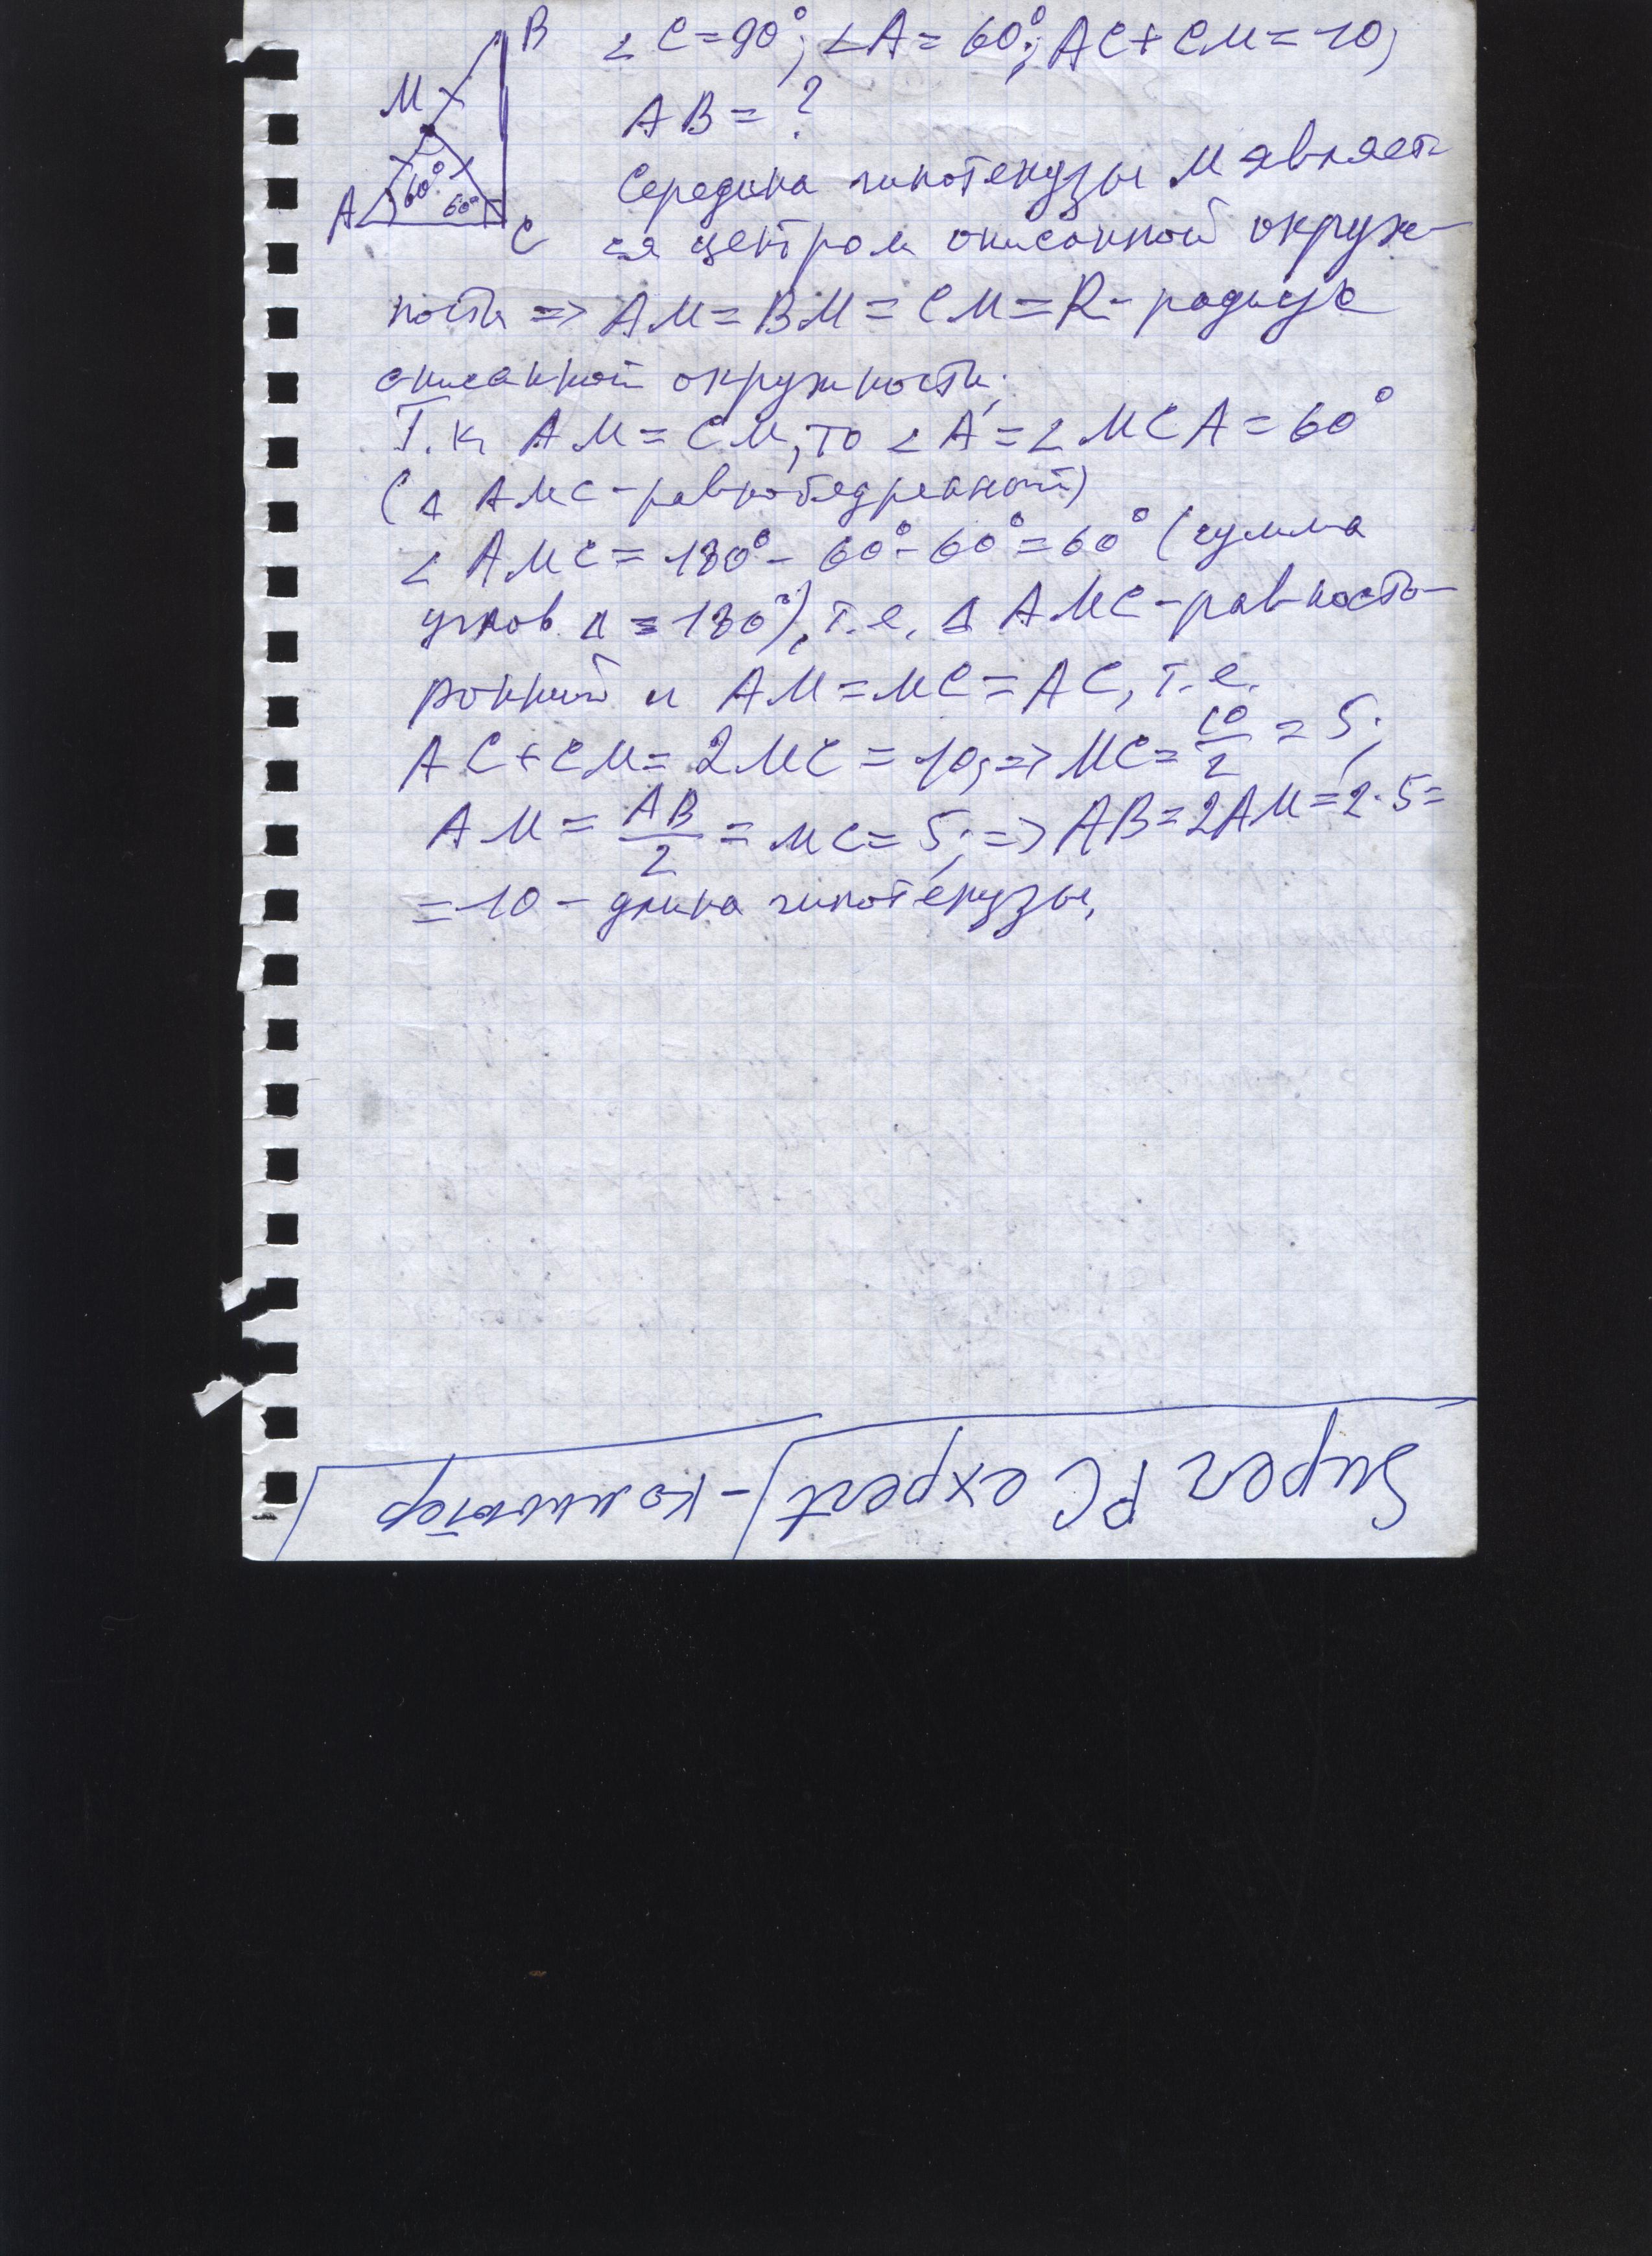 B
M
60°
60°
A
C
∠C=90°; ∠A=60°; AC+CM=10;
AB=?
Середина гипотенузы M являет-
ся центром описанной окруж-
ности => AM=BM=CM=R-радиус
описанной окружности.
Т.к. AM=CM, то ∠A=∠MCA=60°
(Δ AMC-равнобедренный)
∠AMC=180°-60°-60°=60° (сумма
углов Δ=180°), т.е. Δ AMC-равносто-
ронний и AM=MC=AC, т.е.
AC+CM=2MC=10; => MC=10/2=5;
AM=AB/2=MC=5; => AB=2AM=2·5=
=10-длина гипотенузы.
Super PC expert -компьютер